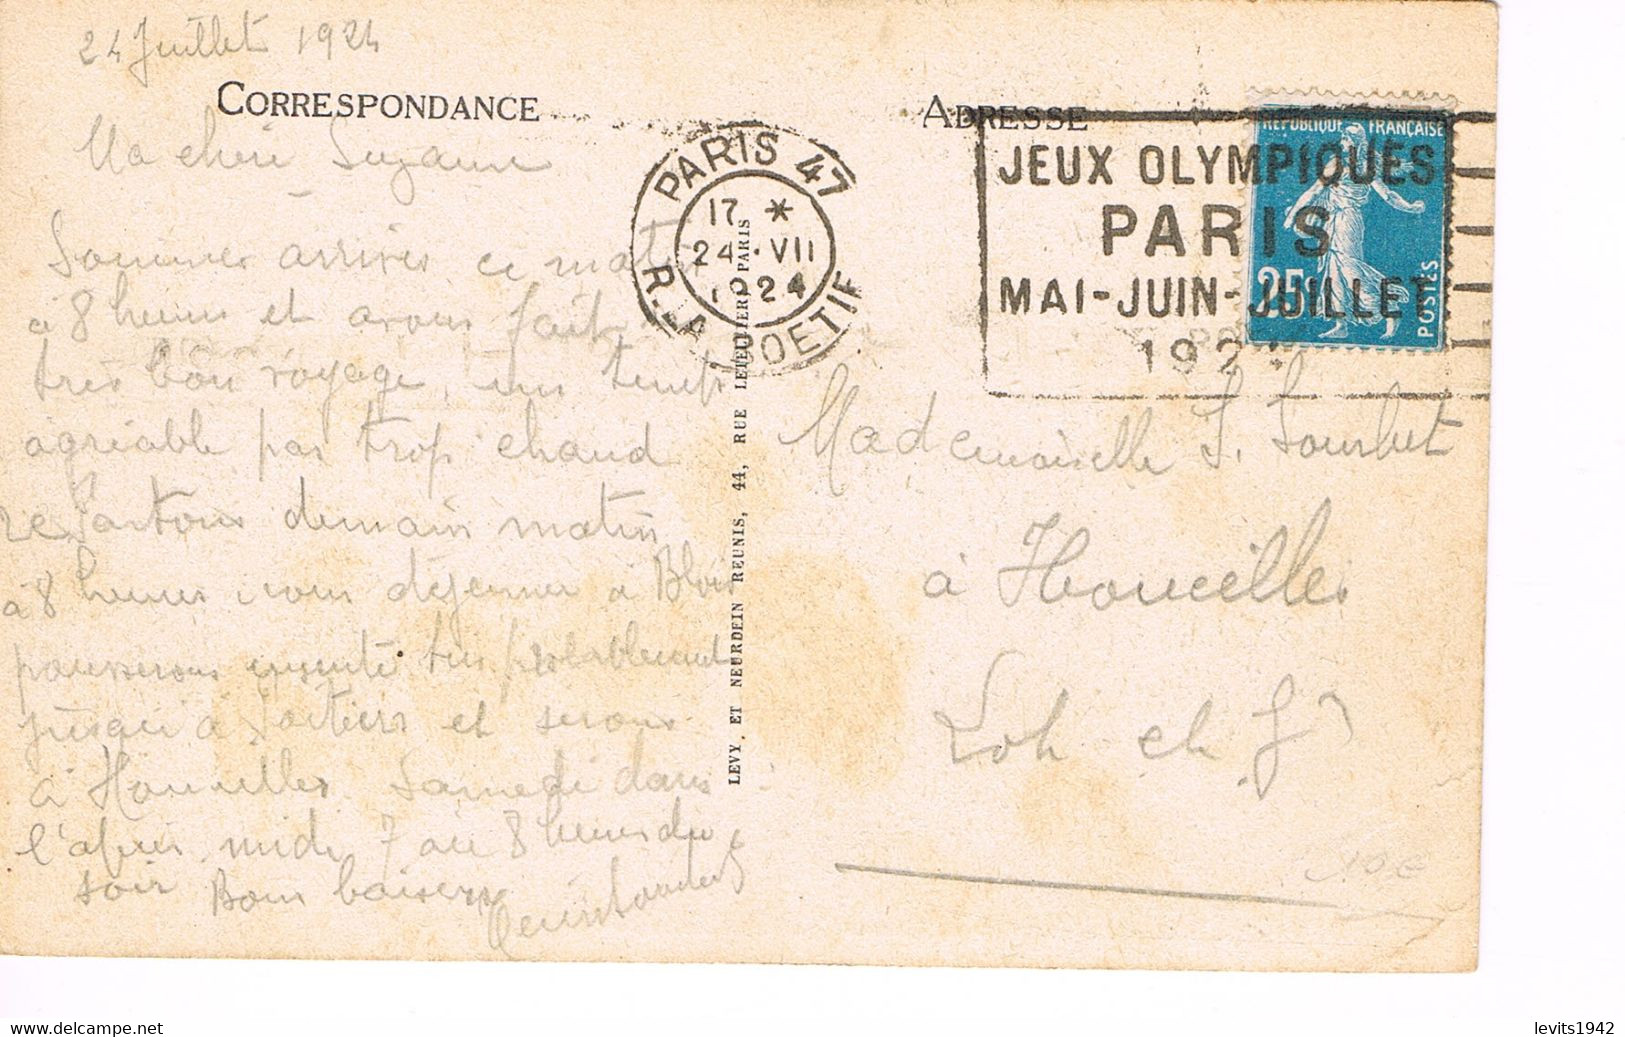 24 Juillet 1924
CORRESPONDANCE
Ma cheri Suzanne
Sommes arrivés ce matin
à 8 heures et avons fait
très bon voyage, un temps
agréable pas trop chaud
Repartons demain matin
à 8 heures irons déjeuner à Blois
pousserons ensuite très probablement
jusqu'à Poitiers et serons
à Houeilles Samedi dans
l'après midi 7 ou 8 heures du
soir Bons baisers
PARIS 47
17 *
24 · VII
1924
R. LA BOETIE
LEVY ET NEURDEIN REUNIS, 44, RUE LETELLIER, PARIS
ADRESSE
JEUX OLYMPIQUES
PARIS
MAI-JUIN-JUILLET
1924
REPUBLIQUE FRANÇAISE
25c
POSTES
Mademoiselle S. Sourbet
à Houeilles
Lot et G
10 €
levits1942